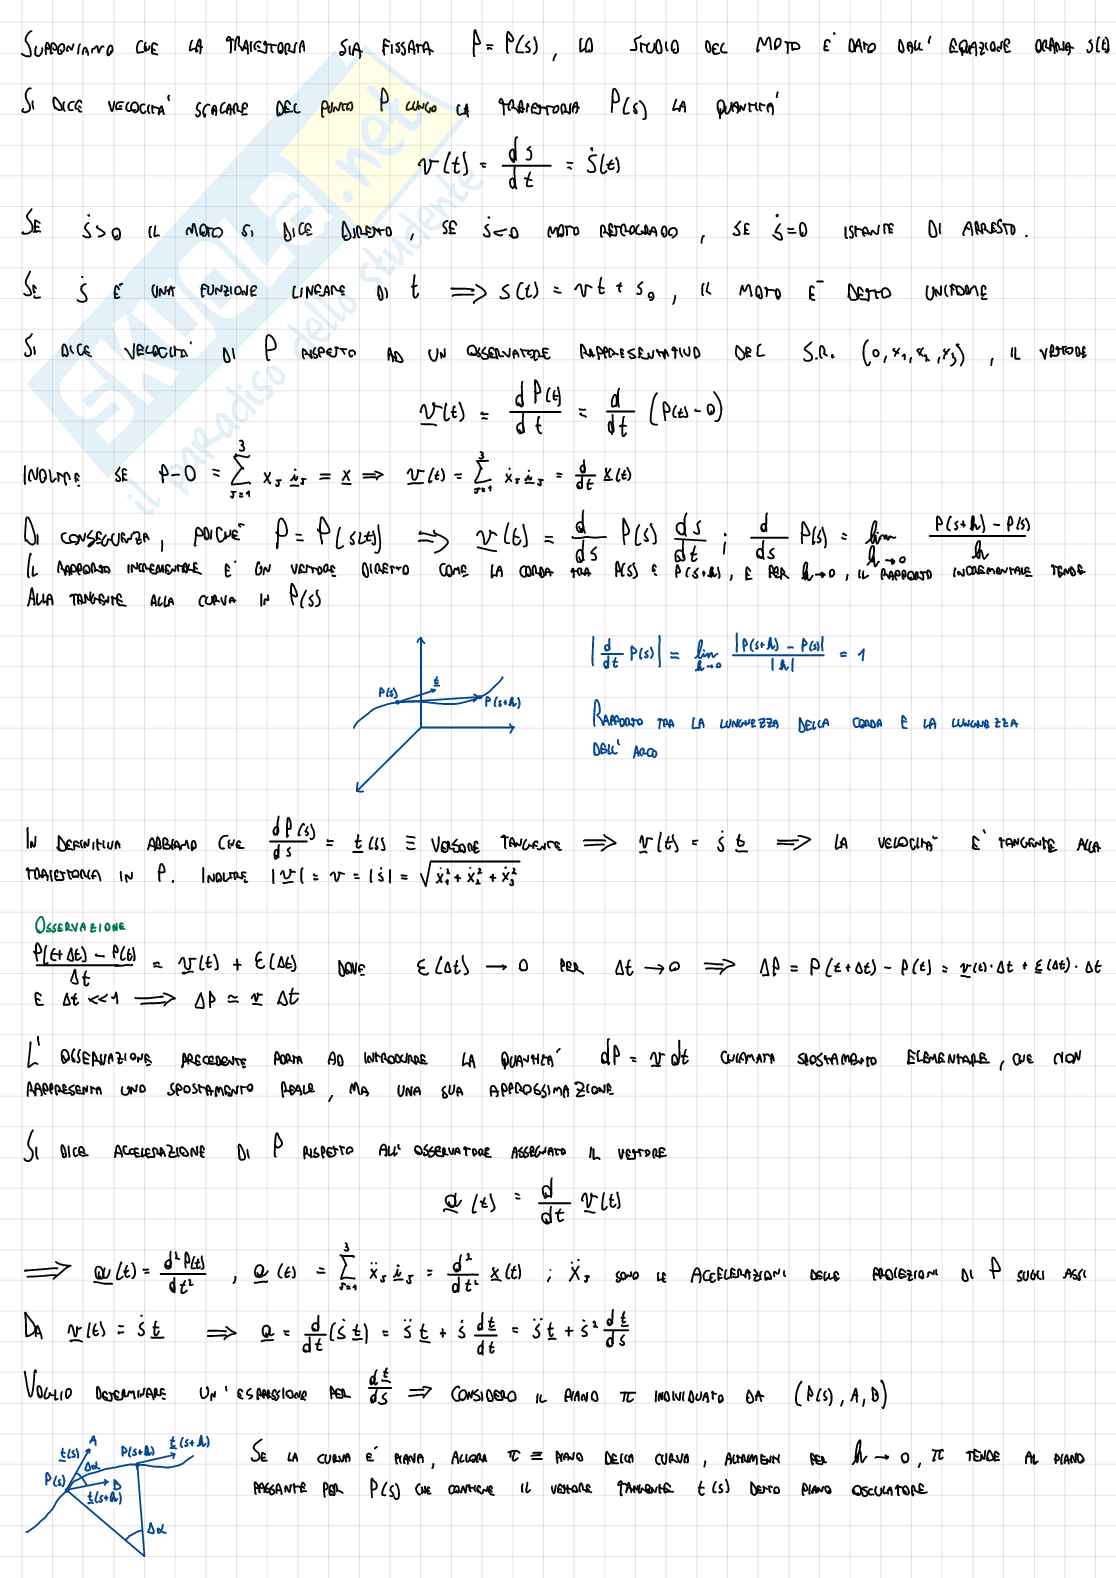 SUPPONIAMO CHE LA TRAIETTORIA SIA FISSATA P = P(s), LO STUDIO DEL MOTO E' DATO DALL' EQUAZIONE ORARIA s(t)
SI DICE VELOCITA' SCALARE DEL PUNTO P LUNGO LA TRAIETTORIA P(s) LA QUANTITA'
v(t) = ds/dt = ṡ(t)
SE ṡ>0 IL MOTO SI DICE DIRETTO, SE ṡ<0 MOTO RETROGRADO, SE ṡ=0 ISTANTE DI ARRESTO.
SE ṡ E' UNA FUNZIONE LINEARE DI t ⟹ s(t) = vt + s₀, IL MOTO E' DETTO UNIFORME
SI DICE VELOCITA' DI P RISPETTO AD UN OSSERVATORE RAPPRESENTATIVO DEL S.R. (O, x₁, x₂, x₃), IL VETTORE
v(t) = dP(t)/dt = d/dt (P(t) - O)
INOLTRE SE P-O = Σ_{J=1}^{3} x_J i_J = x ⟹ v(t) = Σ_{J=1}^{3} ẋ_J i_J = d/dt x(t)
DI CONSEGUENZA, POICHE' P = P(s(t)) ⟹ v(t) = d/ds P(s) ds/dt ; d/ds P(s) = lim_{h→0} (P(s+h) - P(s))/h
IL RAPPORTO INCREMENTALE E' UN VETTORE DIRETTO COME LA CORDA TRA P(s) E P(s+h), E PER h→0, IL RAPPORTO INCREMENTALE TENDE
ALLA TANGENTE ALLA CURVA IN P(s)
|d/dt P(s)| = lim_{h→0} |P(s+h) - P(s)|/|h| = 1
P(s) t P(s+h)
RAPPORTO TRA LA LUNGHEZZA DELLA CORDA E LA LUNGHEZZA
DELL' ARCO
IN DEFINITIVA ABBIAMO CHE dP(s)/ds = t(s) ≡ VERSORE TANGENTE ⟹ v(t) = ṡ t ⟹ LA VELOCITA' E' TANGENTE ALLA
TRAIETTORIA IN P. INOLTRE |v| = v = |ṡ| = √(ẋ₁² + ẋ₂² + ẋ₃²)
OSSERVAZIONE
(P(t+Δt) - P(t))/Δt = v(t) + ε(Δt) DOVE ε(Δt) → 0 PER Δt → 0 ⟹ ΔP = P(t+Δt) - P(t) = v(t)·Δt + ε(Δt)·Δt
E Δt <<1 ⟹ ΔP ≃ v Δt
L' OSSERVAZIONE PRECEDENTE PORTA AD INTRODURRE LA QUANTITA' dP = v dt CHIAMATA SPOSTAMENTO ELEMENTARE, CHE NON
RAPPRESENTA UNO SPOSTAMENTO REALE, MA UNA SUA APPROSSIMAZIONE
SI DICE ACCELERAZIONE DI P RISPETTO ALL' OSSERVATORE ASSEGNATO IL VETTORE
a(t) = d/dt v(t)
⟹ a(t) = d²P(t)/dt², a(t) = Σ_{J=1}^{3} ẍ_J i_J = d²/dt² x(t) ; ẍ_J SONO LE ACCELERAZIONI DELLE PROIEZIONI DI P SUGLI ASSI
DA v(t) = ṡ t ⟹ a = d/dt (ṡ t) = s̈ t + ṡ dt/dt = s̈ t + ṡ² dt/ds
VOGLIO DETERMINARE UN' ESPRESSIONE PER dt/ds ⟹ CONSIDERO IL PIANO π INDIVIDUATO DA (P(s), A, B)
t(s) A P(s+h) t(s+h)
P(s) Δα B
t(s+h)
Δα
SE LA CURVA E' PIANA, ALLORA π ≡ PIANO DELLA CURVA, ALTRIMENTI PER h→0, π TENDE AL PIANO
PASSANTE PER P(s) CHE CONTIENE IL VETTORE TANGENTE t(s) DETTO PIANO OSCULATORE
SKUOLA.net
il paradiso dello studente